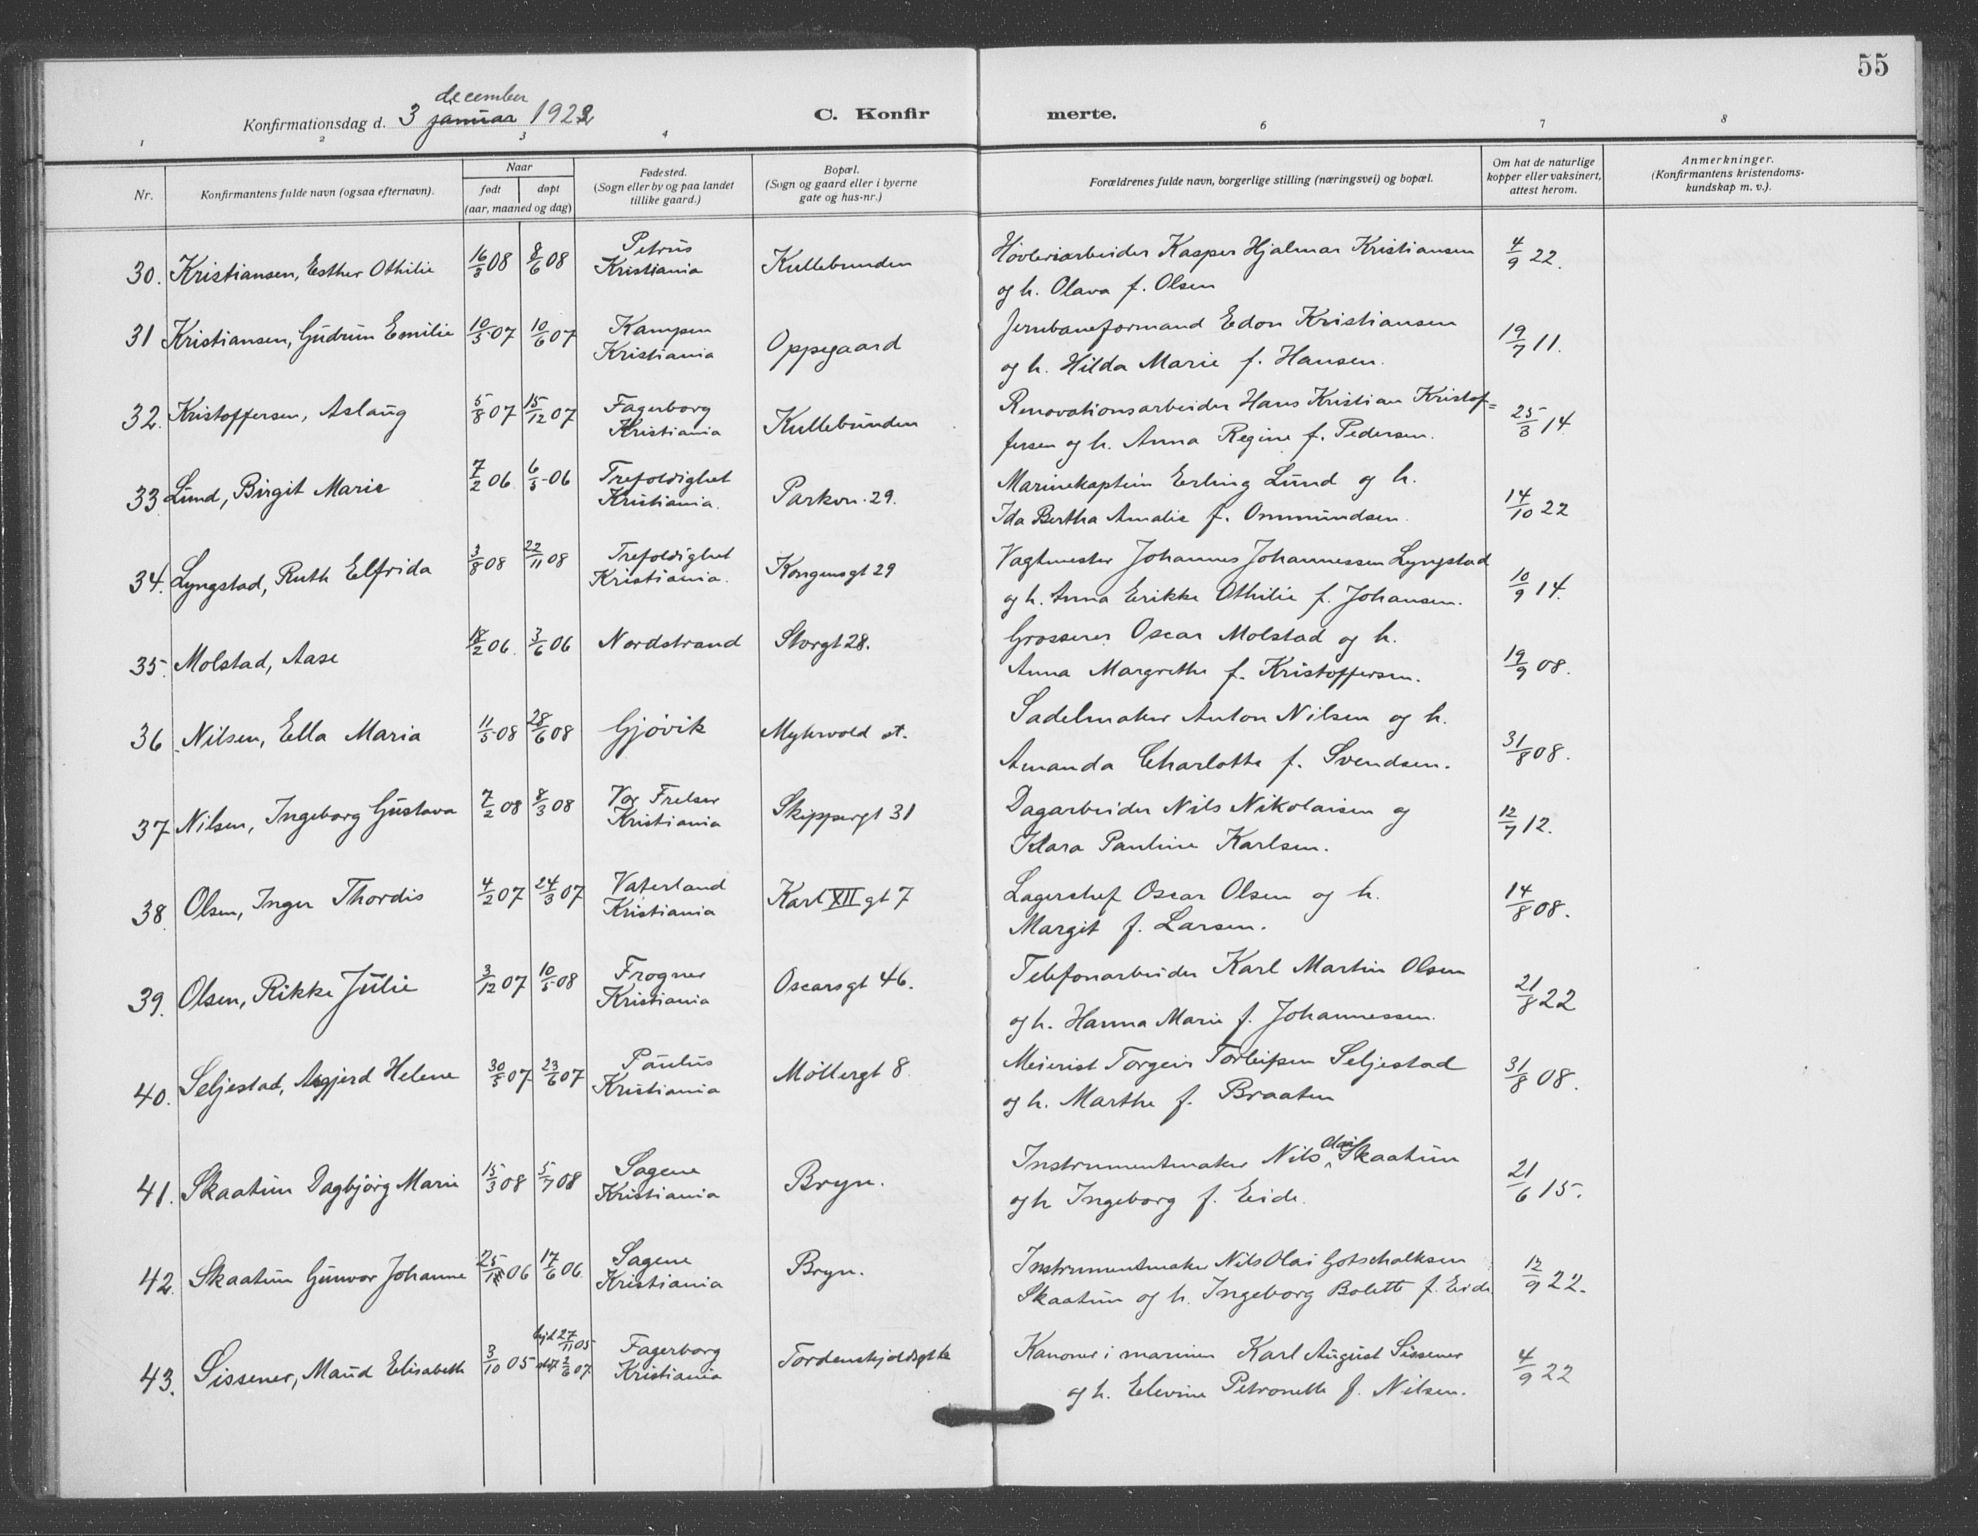 55
december
Konfirmationsdag d. 3 januar 1922
C. Konfirmerte.
1 2 3 4 6 7 8
Nr.
Konfirmantens fulde navn (ogsaa efternavn).
Naar
født
døpt
(aar, maaned og dag)
Fødested.
(Sogn eller by og paa landet
tillike gaard.)
Bopæl.
(Sogn og gaard eller i byerne
gate og hus-nr.)
Forældrenes fulde navn, borgerlige stilling (næringsvei) og bopæl.
Om hat de naturlige
kopper eller vaksinert,
attest herom.
Anmerkninger.
(Konfirmantens kristendoms-
kundskap m. v.).
30. Kristiansen, Esther Othilie 16/3 08 8/6 08 Petrus Kristiania Kullebunden
Høvleriarbeider Kasper Hjalmar Kristiansen
og h. Olava f. Olsen
4/9 22.
31 Kristiansen, Gudrun Emilie 10/5 07 10/6 07 Kampen Kristiania Oppegaard
Jernbaneformand Edon Kristiansen
og h. Hilda Marie f. Hansen.
19/7 11.
32. Kristoffersen, Aslaug 5/8 07 15/12 07 Fagerborg Kristiania Kullebunden
Renovationsarbeider Hans Kristian Kristof=
fersen og h. Anna Regine f. Pedersen.
25/3 14
33 Lund, Birgit Marie 7/2 06 6/5 06 Trefoldighet Kristiania. Parkvn. 29.
Marinekaptein Erling Lund og h.
Ida Bertha Amalie f. Ommundsen.
14/10 22
34. Lyngstad, Ruth Elfrida 3/8 08 22/11 08 Trefoldighet Kristiania. Kongensgt 29
Vagtmester Johannes Johannessen Lyngstad
og h. Anna Erikke Othilie f. Johansen.
10/9 14.
35. Molstad, Aase 18/2 06. 3/6 06 Nordstrand Storgt 28.
Grosserer Oscar Molstad og h.
Anna Margrethe f. Kristoffersen.
19/9 08.
36 Nilsen, Ella Maria 11/5 08 28/6 08 Gjøvik Myhrvold st.
Sadelmaker Anton Nilsen og h.
Amanda Charlotte f. Svendsen.
31/8 08.
37 Nilsen, Ingeborg Gustava 7/2 08 8/3 08 Vor Frelser Kristiania Skippergt 31
Dagarbeider Nils Nikolaisen og
Klara Pauline Karlsen.
12/7 12.
38. Olsen, Inger Thordis 4/2 07 24/3 07 Vaterland Kristiania Karl XII gt 7
Lagerchef Oscar Olsen og h.
Margit f. Larsen.
14/8 08.
39. Olsen, Rikke Julie 3/12 07 10/5 08 Frogner Kristiania Oscarsgt 46.
Telefonarbeider Karl Martin Olsen
og h. Hanna Marie f. Johannessen.
21/8 22
40. Seljestad, Asgjerd Helene 30/5 07 23/6 07 Paulus Kristiania Møllergt 8
Meierist Torgeir Torleifsen Seljestad
og h. Marthe f. Braaten
31/8 08.
41. Skaatun Dagbjörg Marie 15/3 08 5/7 08 Sagene Kristiania Bryn.
Instrumentmaker Nils Olai Skaatun
og h Ingeborg f. Eide.
21/6 15.
42. Skaatun Gunvor Johanne 25/ 06 17/6 06. Sagene Kristiania Bryn.
Instrumentmaker Nils Olai Gotschalksen
Skaatun og h. Ingeborg Bolette f. Eide
12/9 22.
43. Sissener, Maud Elisabeth 3/10 05 27/11 05 2/6 07 Fagerborg Kristiania Tordenskjoldsgt
Kanoner i marinen Karl August Sissener
og h. Elevine Petronelle f. Nilsen.
4/9 22